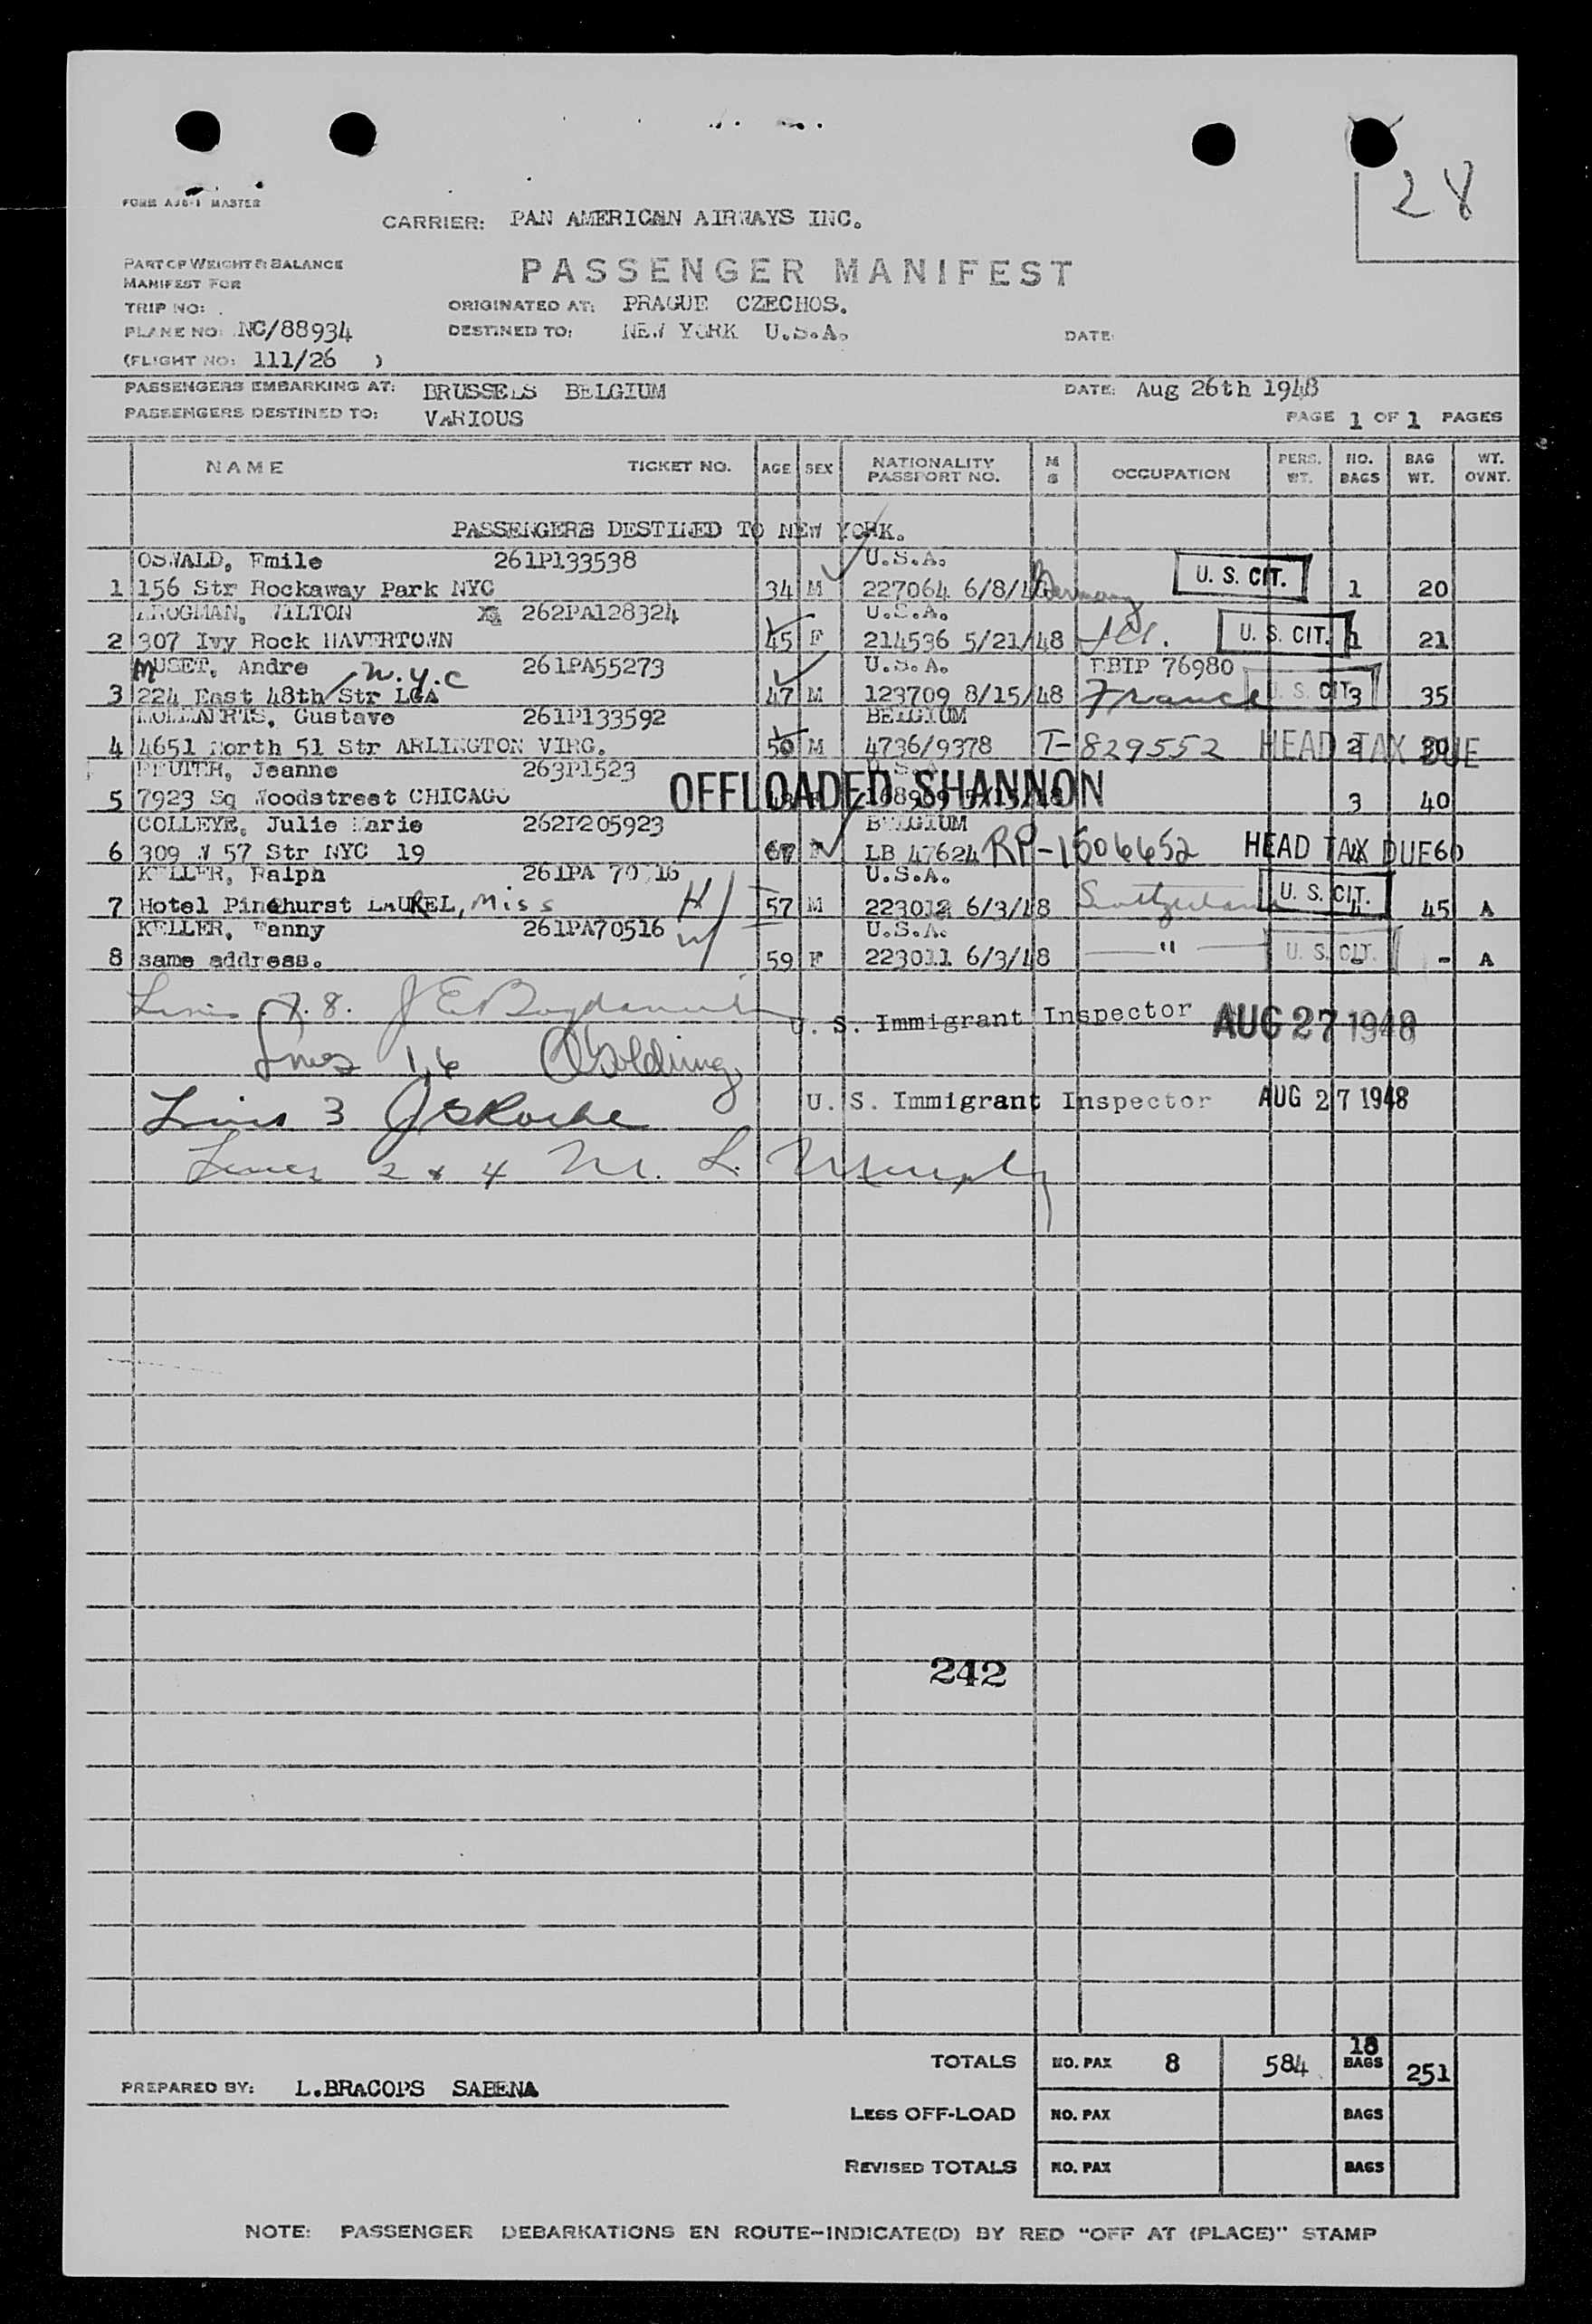 28
FORM AJ6-1 MASTER
CARRIER: PAN AMERICAN AIRWAYS INC.
PART OF WEIGHT & BALANCE
MANIFEST FOR
PASSENGER MANIFEST
TRIP NO:
ORIGINATED AT: PRAGUE CZECHOS.
PLANE NO: NC/88934
DESTINED TO: NEW YORK U.S.A.
DATE:
(FLIGHT NO: 111/26 )
PASSENGERS EMBARKING AT: BRUSSELS BELGIUM
DATE: Aug 26th 1948
PASSENGERS DESTINED TO: VARIOUS
PAGE 1 OF 1 PAGES
NAME TICKET NO. AGE SEX NATIONALITY PASSPORT NO. M S OCCUPATION PERS. WT. NO. BAGS BAG WT. WT. OVNT.
PASSENGERS DESTINED TO NEW YORK.
OSWALD, Emile 261P133538 U.S.A.
1 156 Str Rockaway Park NYC 34 M 227064 6/8/ Germany U. S. CIT. 1 20
KROGMAN, MILTON 262PA128324 U.S.A.
2 307 Ivy Rock HAVERTOWN 45 F 214536 5/21/48 U. S. CIT. 1 21
MUSET, Andre N.Y.C 261PA55273 U.S.A. FBIP 76980
3 224 East 48th Str LGA 47 M 123709 8/15/48 France U. S. CIT. 3 35
Gustave 261P133592 BELGIUM
4 4651 North 51 Str ARLINGTON VIRG. 50 M 4736/9378 T-829552 HEAD TAX DUE 2 30
Jeanne 263P1523 U.S.A.
5 7923 Sq Woodstreet CHICAGO OFFLOADED SHANNON 3 40
COLLEYE, Julie Marie 262P205923 BELGIUM
6 309 W 57 Str NYC 19 67 F LB 47624 RP-1506652 HEAD TAX DUE 4 60
KELLER, Ralph 261PA 70516 U.S.A.
7 Hotel Pinehurst LAUREL, Miss H 57 M 223012 6/3/48 Switzerland U. S. CIT. 4 45 A
KELLER, Fanny 261PA70516 W U.S.A.
8 same address. 59 F 223011 6/3/48 " U. S. CIT. - - A
Lines 7.8. U. S. Immigrant Inspector AUG 27 1948
Lines 1,6 Golding
Lines 3 U. S. Immigrant Inspector AUG 27 1948
Lines 2 & 4 M. L. Murphy
242
TOTALS NO. PAX 8 584 18 BAGS 251
PREPARED BY: L.BRACOPS SABENA
LESS OFF-LOAD NO. PAX BAGS
REVISED TOTALS NO. PAX BAGS
NOTE: PASSENGER DEBARKATIONS EN ROUTE-INDICATE(D) BY RED "OFF AT (PLACE)" STAMP